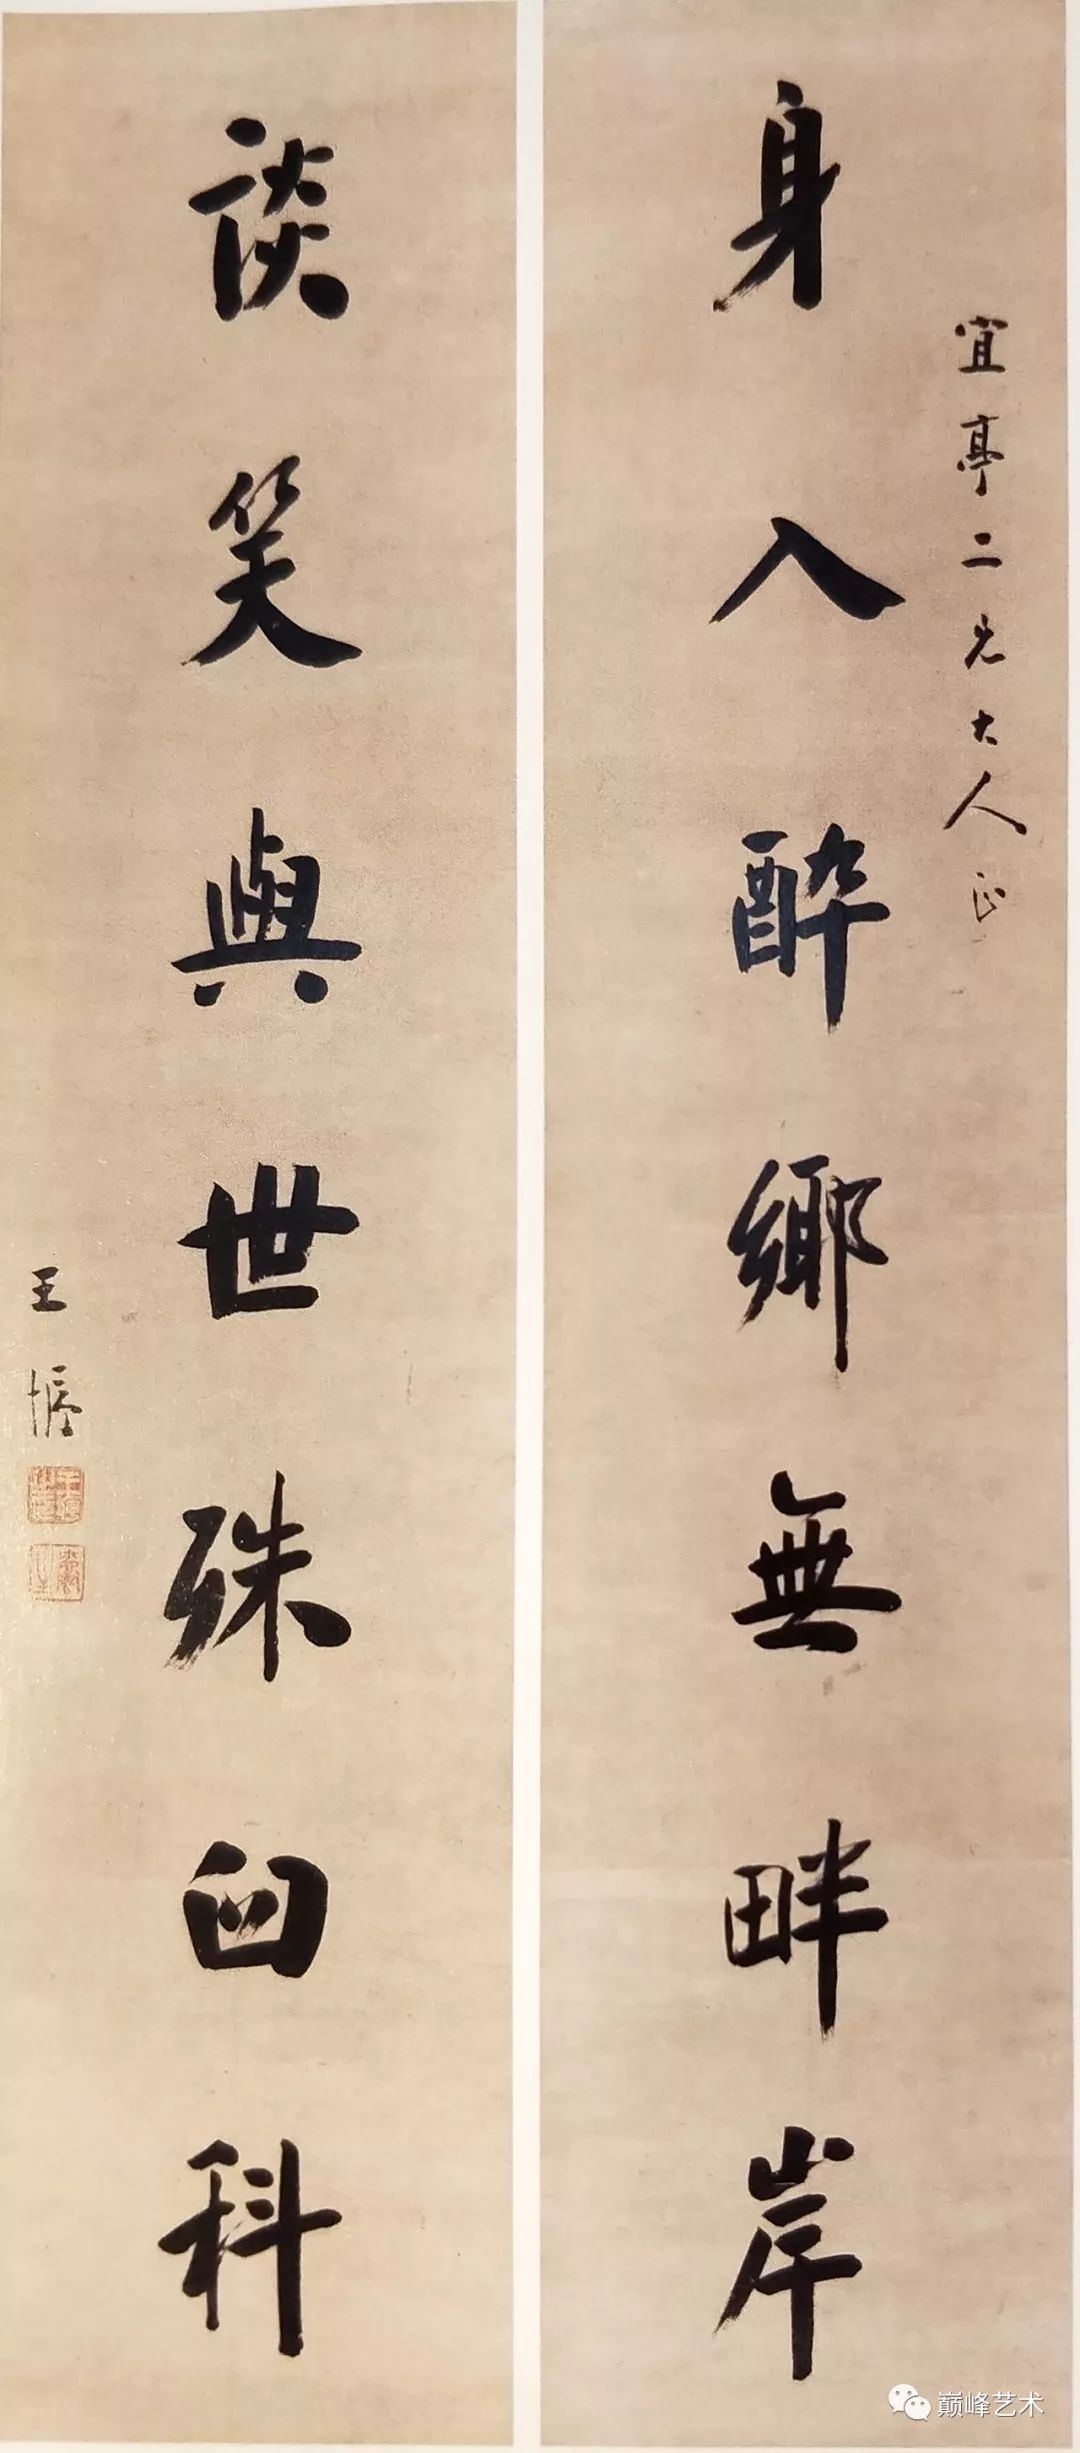 宜亭二兄大人正
身入醉鄉無畔岸
談笑與世殊臼科
王
巅峰艺术